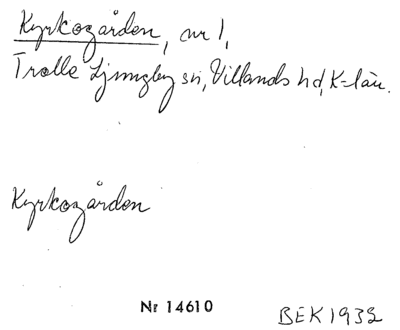 Kyrkogården, nr 1,
Trolle Ljungby sn, Villands hd, K-län.
Kyrkogården
Nr 14610
BEK 1932